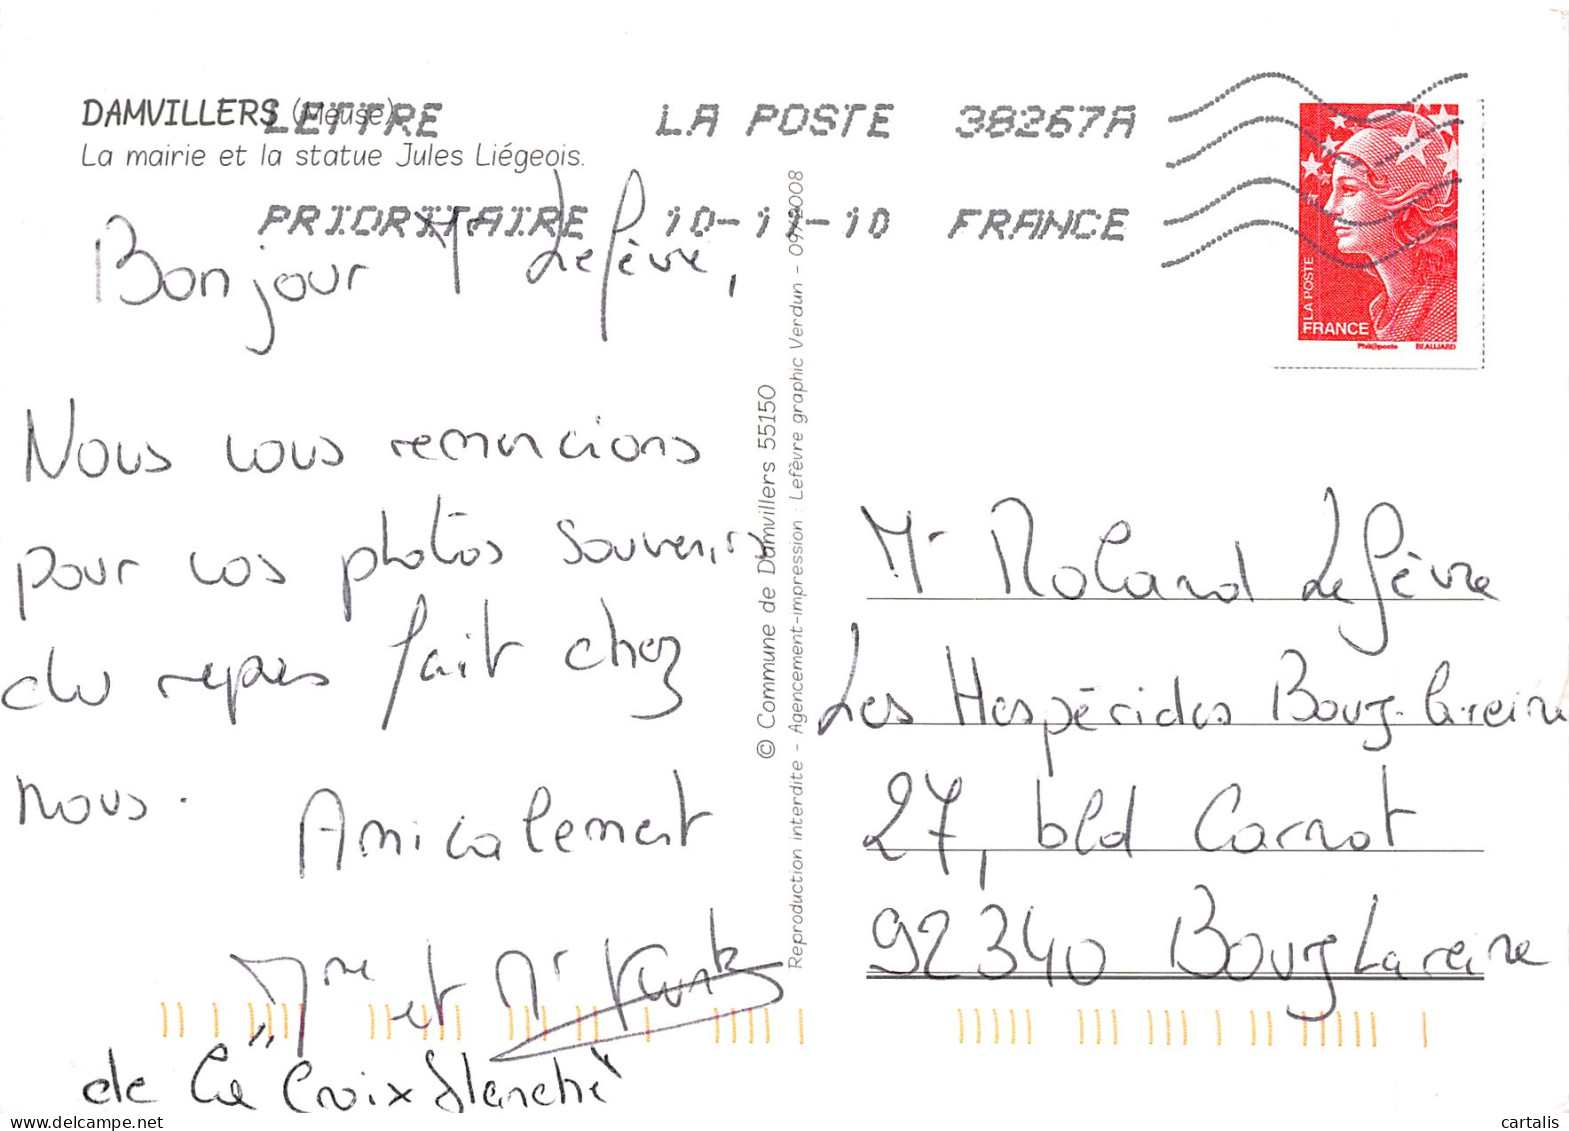 DAMVILLERS (Meuse)
La mairie et la statue Jules Liégeois.
LETTRE
PRIORITAIRE
LA POSTE 38267A
10-11-10 FRANCE
LA POSTE
FRANCE
Phil@poste BEAUJARD
Bonjour Mr Lefèvre,
Nous vous remercions
pour vos photos souvenirs
du repas fait chez
nous.
Amicalement
Mme et Mr
de la "Croix Blanche"
© Commune de Damvillers 55150
Reproduction interdite - Agencement-impression : Lefèvre graphic Verdun - 09/2008
Mr Roland Lefèvre
Les Hespérides Bourg-la-reine
27, bld Carnot
92340 Bourg La reine
cartalis